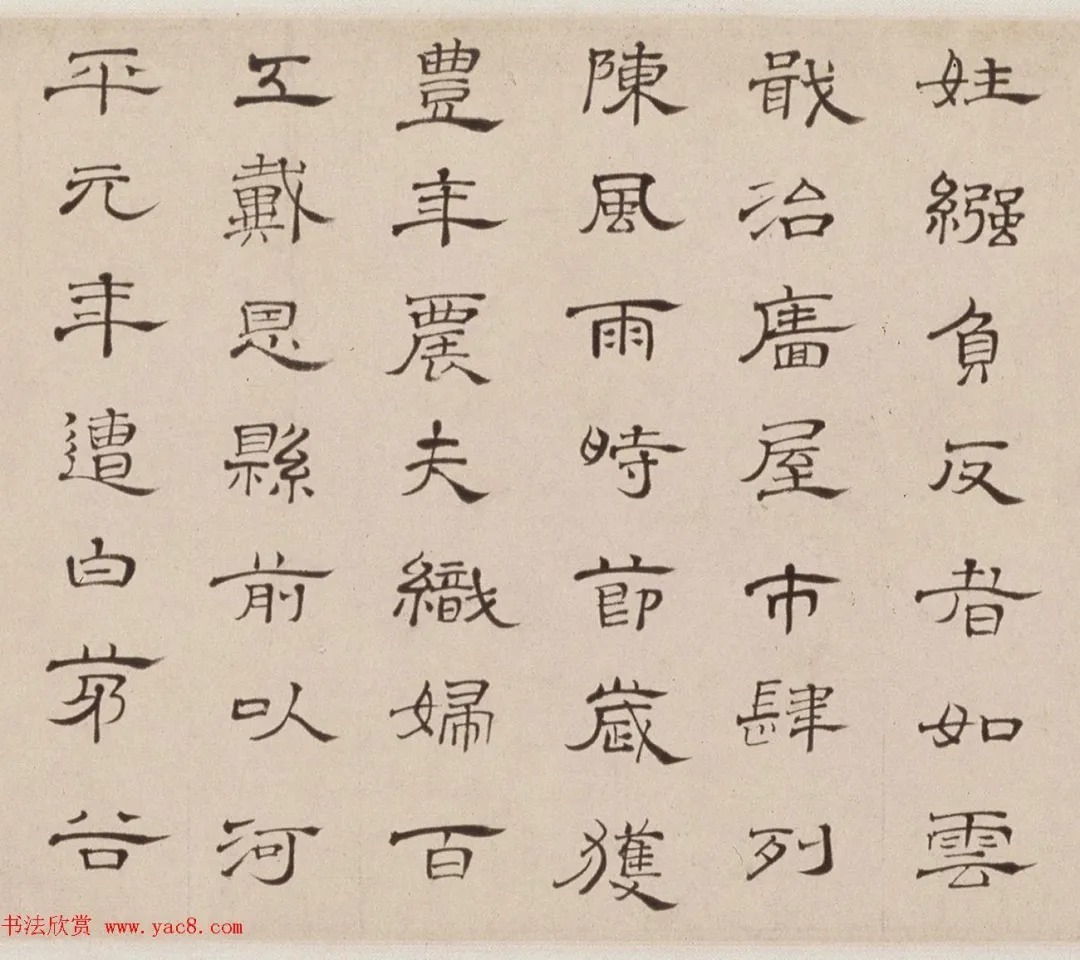 姓繈負反者如雲
戢治廧屋市肆列
陳風雨時節歲獲
豊年農夫織婦百
工戴恩縣前以河
平元年遭白茅谷
书法欣赏 www.yac8.com